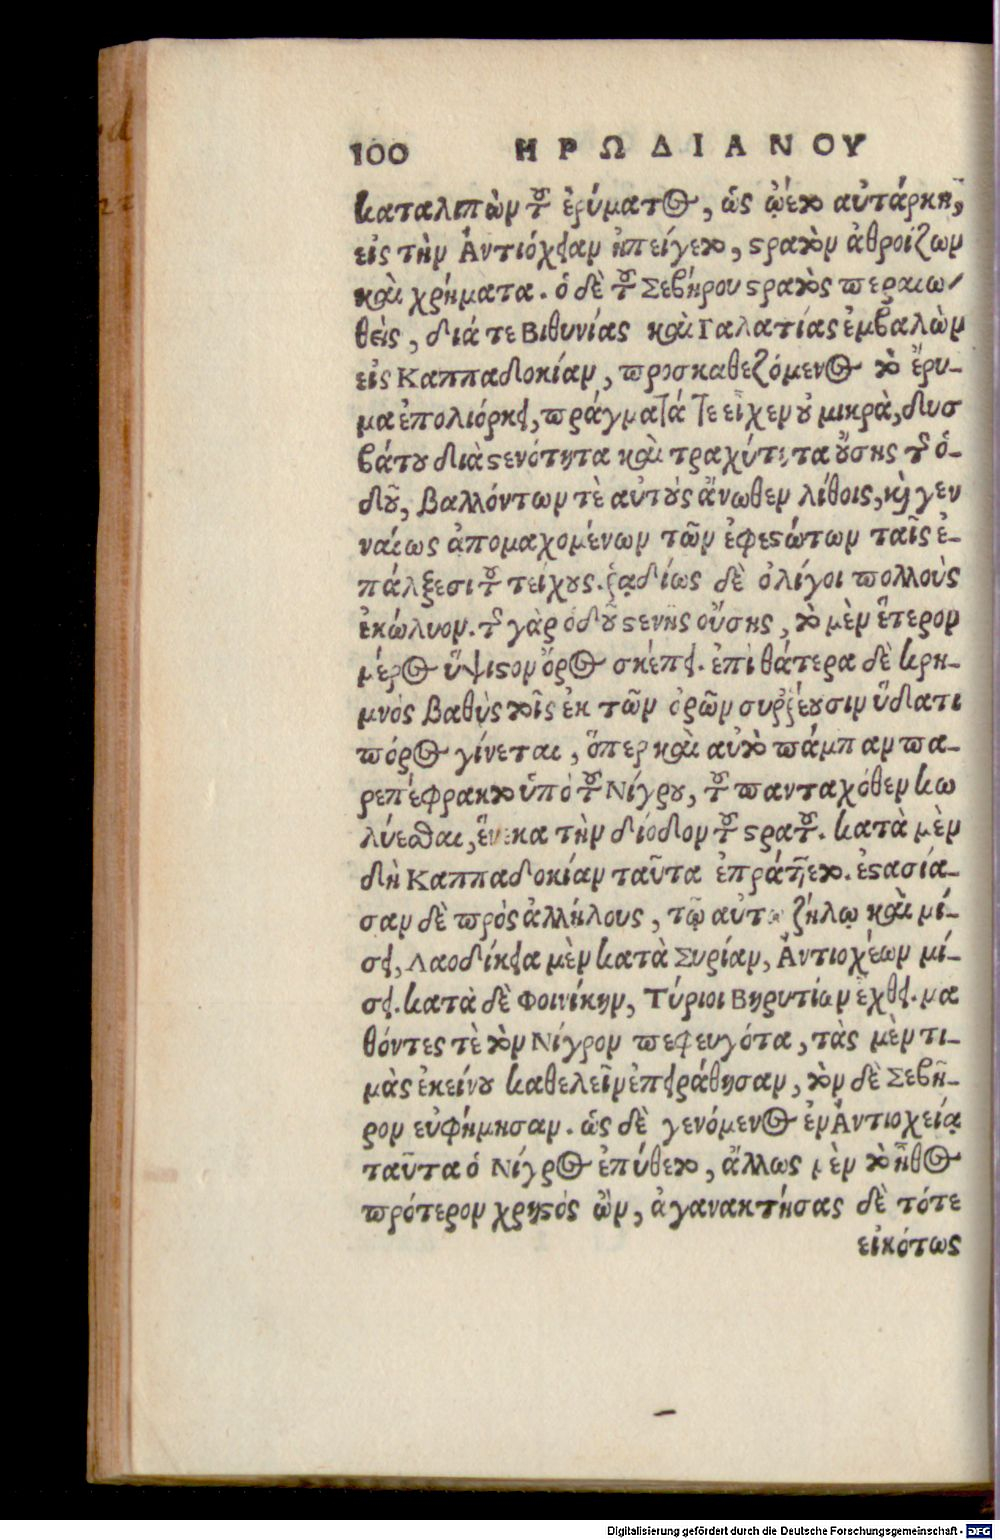 100 ΗΡΩΔΙΑΝΟΥ
καταλιπὼν τοῦ ἐρύματος, ὡς ᾤετο αὐτάρκη,
εἰς τὴν Ἀντιόχειαν ἠπείγετο, στρατὸν ἀθροίζων
καὶ χρήματα. ὁ δὲ τοῦ Σεβήρου στρατὸς περαιω-
θεὶς, διά τε Βιθυνίας καὶ Γαλατίας ἐμβαλὼν
εἰς Καππαδοκίαν, προσκαθεζόμενος τὸ ἔρυ-
μα ἐπολιόρκει, πράγματά τε εἶχεν οὐ μικρὰ, δυσ
βάτου διὰ στενότητα καὶ τραχύτητα οὔσης τῆς ὁ-
δοῦ, βαλλόντων τὲ αὐτοὺς ἄνωθεν λίθοις, καὶ γεν
ναίως ἀπομαχομένων τῶν ἐφεστώτων ταῖς ἐ-
πάλξεσι τοῦ τείχους. ῥᾳδίως δὲ ὀλίγοι πολλοὺς
ἐκώλυον. τῆς γὰρ ὁδοῦ στενῆς οὔσης, τὸ μὲν ἕτερον
μέρος ὕψιστον ὄρος σκέπει. ἐπὶ θάτερα δὲ κρη-
μνὸς βαθὺς τοῖς ἐκ τῶν ὀρῶν συῤῥέουσιν ὕδατι
πόρος γίνεται, ὅπερ καὶ αὐτὸ πάμπαν πα-
ρεπέφρακτο ὑπὸ τοῦ Νίγρου, τοῦ πανταχόθεν κω
λύεσθαι, ἕνεκα τὴν δίοδον τοῦ στρατοῦ. κατὰ μὲν
δὴ Καππαδοκίαν ταῦτα ἐπράττετο. ἐστασία-
σαν δὲ πρὸς ἀλλήλους, τῷ αὐτῷ ζήλῳ καὶ μί-
σει, Λαοδίκεια μὲν κατὰ Συρίαν, Ἀντιοχέων μί-
σει. κατὰ δὲ Φοινίκην, Τύριοι Βηρυτίων ἔχθει. μα
θόντες τὲ τὸν Νίγρον πεφευγότα, τὰς μὲν τι-
μὰς ἐκείνου καθελεῖν ἐπειράθησαν, τὸν δὲ Σεβῆ-
ρον εὐφήμησαν. ὡς δὲ γενόμενος ἐν Ἀντιοχείᾳ
ταῦτα ὁ Νίγρος ἐπύθετο, ἄλλως μὲν τὸ ἦθος
πρότερον χρηστὸς ὢν, ἀγανακτήσας δὲ τότε
εἰκότως
Digitalisierung gefördert durch die Deutsche Forschungsgemeinschaft - DFG